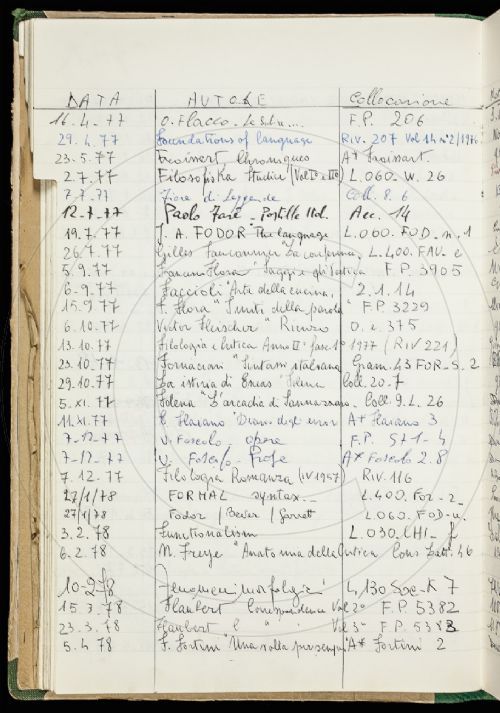 DATA AUTORE Collocazione
16-4-77 O. Flacco - Le Satire.... F.P. 206
29.4.77 Foundations of language RIV. 207 Vol 14 n°2/1976
23-5-77 Froissart Chroniques A* Froissart
2.7.77 Filosofska Studia (Vol I° e III°) L.060.W.26
7-7-77 Fiore di Leggende Coll. 8.6
12-7-77 Paolo - Postille Acc. 14
19.7.77 J. A. FODOR The language L.060.FOD-n.1
26.7.77 Gilles L.400.FAU-e
5.9.77 Flora Saggi F.P. 3905
6-9.77 Faccioli "Arte della cucina, 2.1.14
15.9 77 F. Flora "I miti della parola" F.P. 3229
6.10.77 Victor Fleischer "Rienzo O.e.375
13.10.77 Filologia e critica Anno II° fasc 1° 1977 (RIV 221)
23.10.77 Fornaciari "Sintassi italiana Gram. 43 FOR-S.2
29.10.77 La istoria di Coll. 20-7
5.XI.77 Folena "L'arcadia di Sannazzaro Coll. 9.L.26
11.XI.77 E. Flaiano "Diario degli errori A* Flaiano 3
7-12-77 U. Foscolo opere F.P. 571-4
7-12-77 U. Foscolo - Prose A* Foscolo 2.8
7.12.77 Filologia Romanza (IV 1957) RIV.116
27/1/78 FORMAL syntax.- L.400.FOR-2
27/1/78 Fodor / Bever / Garrett L.060.FOD-u.
3.2.78 Functionalism L.030.CHI-f
6.2.78 N. Freye "Anatomia della Critica Cons. Lett. 46
10-2-78 Fenomeni morfologici L,130 Soc-K 7
15 3.78 Flaubert Correspondence Vol 2° F.P. 5382
23.3.78 Flaubert " " Vol 3° F.P. 5383
5.4 78 F. Fortini "Una volta per sempre" A* Fortini 2